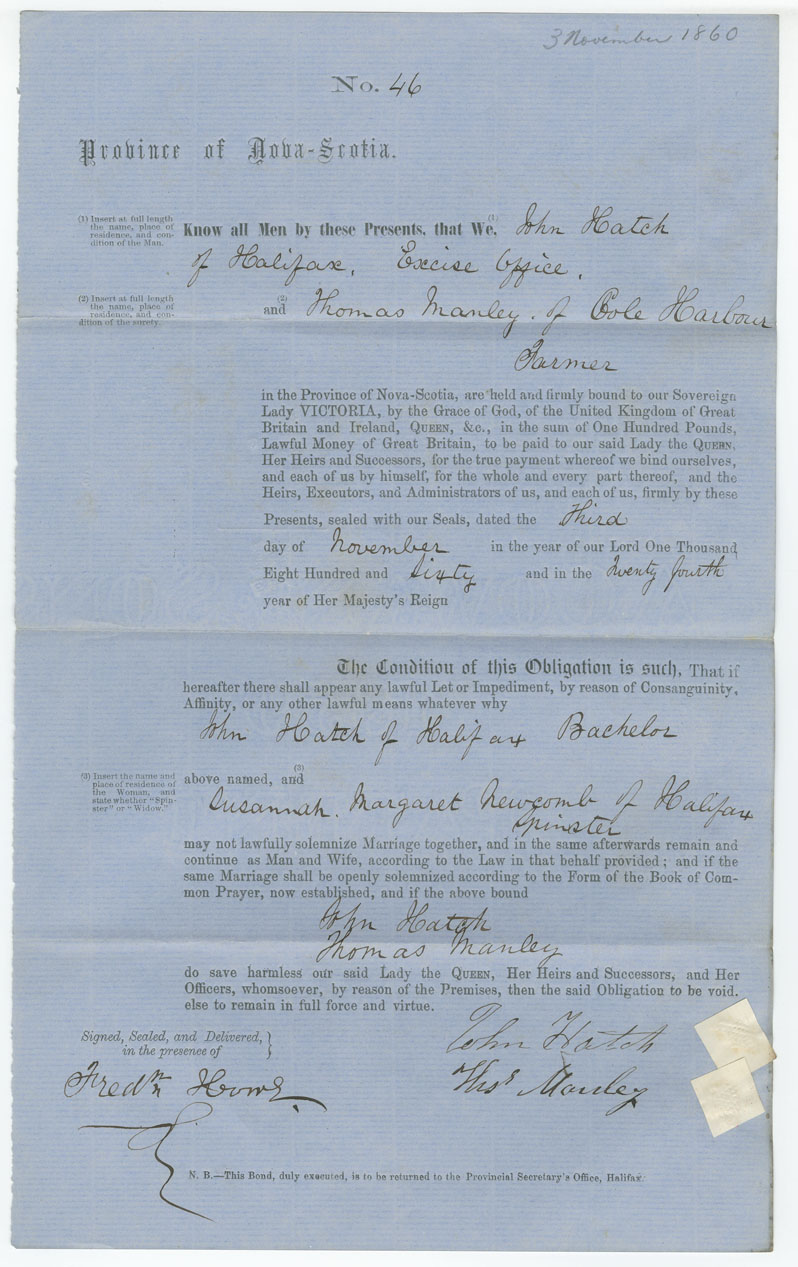 3 November 1860
No. 46
Province of Nova-Scotia.
(1) Insert at full length
the name, place of
residence, and con-
dition of the Man.
Know all Men by these Presents, that We, (1) John Hatch
of Halifax, Excise Office,
(2) Insert at full length
the name, place of
residence, and con-
dition of the surety.
and (2) Thomas Manley. of Cole Harbour
Farmer
in the Province of Nova-Scotia, are held and firmly bound to our Sovereign
Lady VICTORIA, by the Grace of God, of the United Kingdom of Great
Britain and Ireland, QUEEN, &c., in the sum of One Hundred Pounds,
Lawful Money of Great Britain, to be paid to our said Lady the QUEEN,
Her Heirs and Successors, for the true payment whereof we bind ourselves,
and each of us by himself, for the whole and every part thereof, and the
Heirs, Executors, and Administrators of us, and each of us, firmly by these
Presents, sealed with our Seals, dated the Third
day of November in the year of our Lord One Thousand
Eight Hundred and Sixty and in the Twenty fourth
year of Her Majesty's Reign
The Condition of this Obligation is such, That if
hereafter there shall appear any lawful Let or Impediment, by reason of Consanguinity,
Affinity, or any other lawful means whatever why
John Hatch of Halifax Bachelor
(3) Insert the name and
place of residence of
the Woman, and
state whether "Spin-
ster" or "Widow."
above named, and (3)
Susannah. Margaret Newcomb of Halifax
Spinster
may not lawfully solemnize Marriage together, and in the same afterwards remain and
continue as Man and Wife, according to the Law in that behalf provided; and if the
same Marriage shall be openly solemnized according to the Form of the Book of Com-
mon Prayer, now established, and if the above bound
John Hatch
Thomas Manley
do save harmless our said Lady the QUEEN, Her Heirs and Successors, and Her
Officers, whomsoever, by reason of the Premises, then the said Obligation to be void.
else to remain in full force and virtue.
Signed, Sealed, and Delivered,
in the presence of
John Hatch
Thos Manley
Fredk Howe
N. B.—This Bond, duly executed, is to be returned to the Provincial Secretary's Office, Halifax.